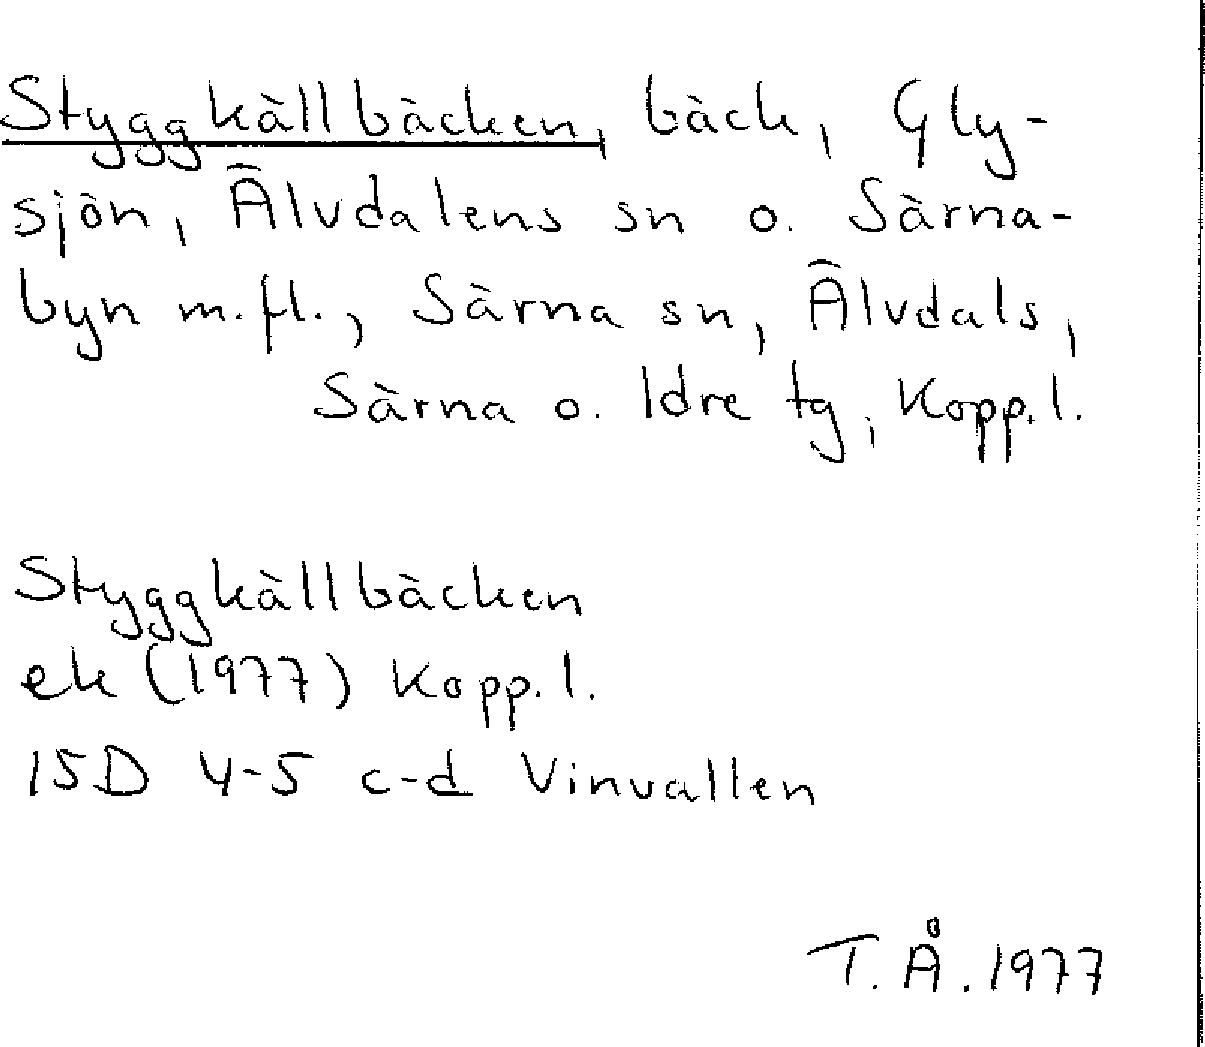 Styggkällbäcken, bäck, Gly-
sjön, Älvdalens sn o. Särna-
byn m.fl., Särna sn, Älvdals,
Särna o. Idre tg, Kopp.l.
Styggkällbäcken
ek (1977) Kopp.l.
15D 4-5 c-d Vinvallen
T.Å.1977